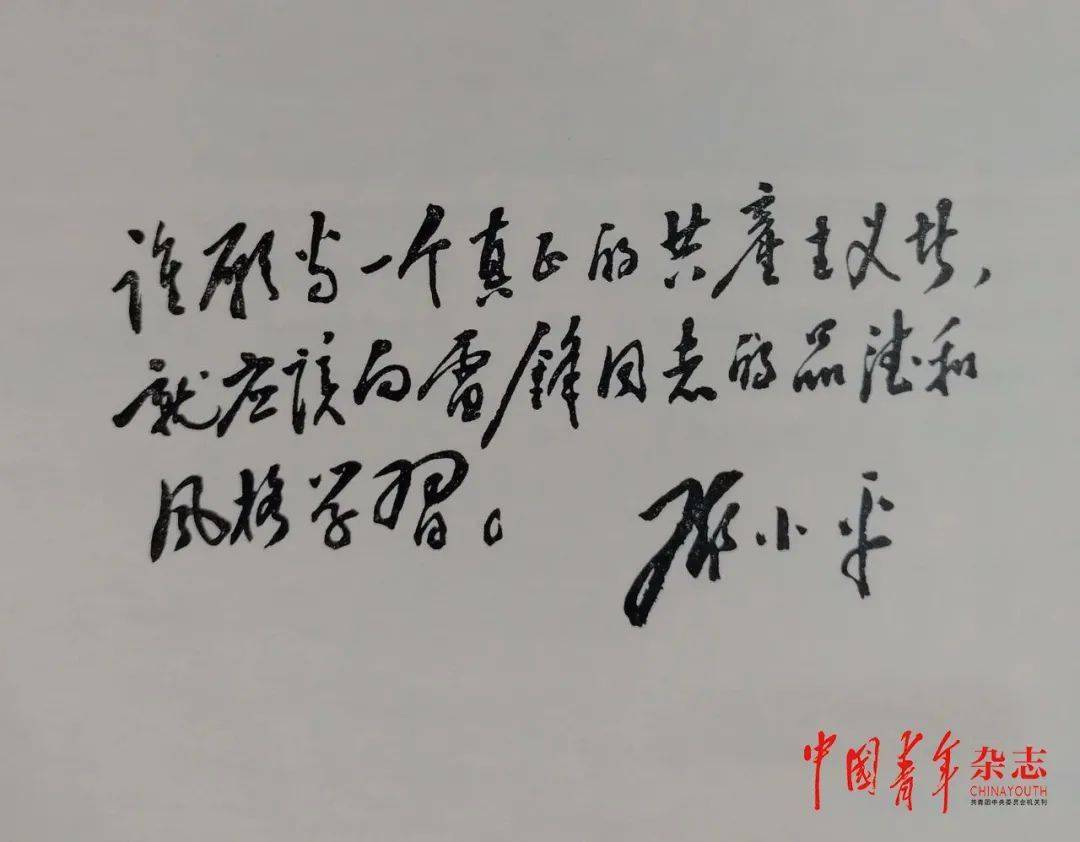 谁愿当一个真正的共產主义者,
就应该向雷鋒同志的品德和
风格学習。
邓小平
中国青年杂志
CHINAYOUTH
共青团中央委员会机关刊